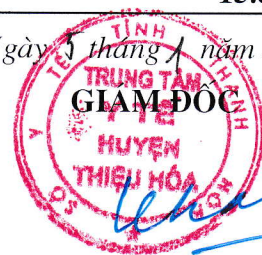 gày 5 tháng 1 năm
GIÁM ĐỐC
SỞ Y TẾ TỈNH THANH HÓA
TRUNG TÂM
Y TẾ
HUYỆN
THIỆU HÓA